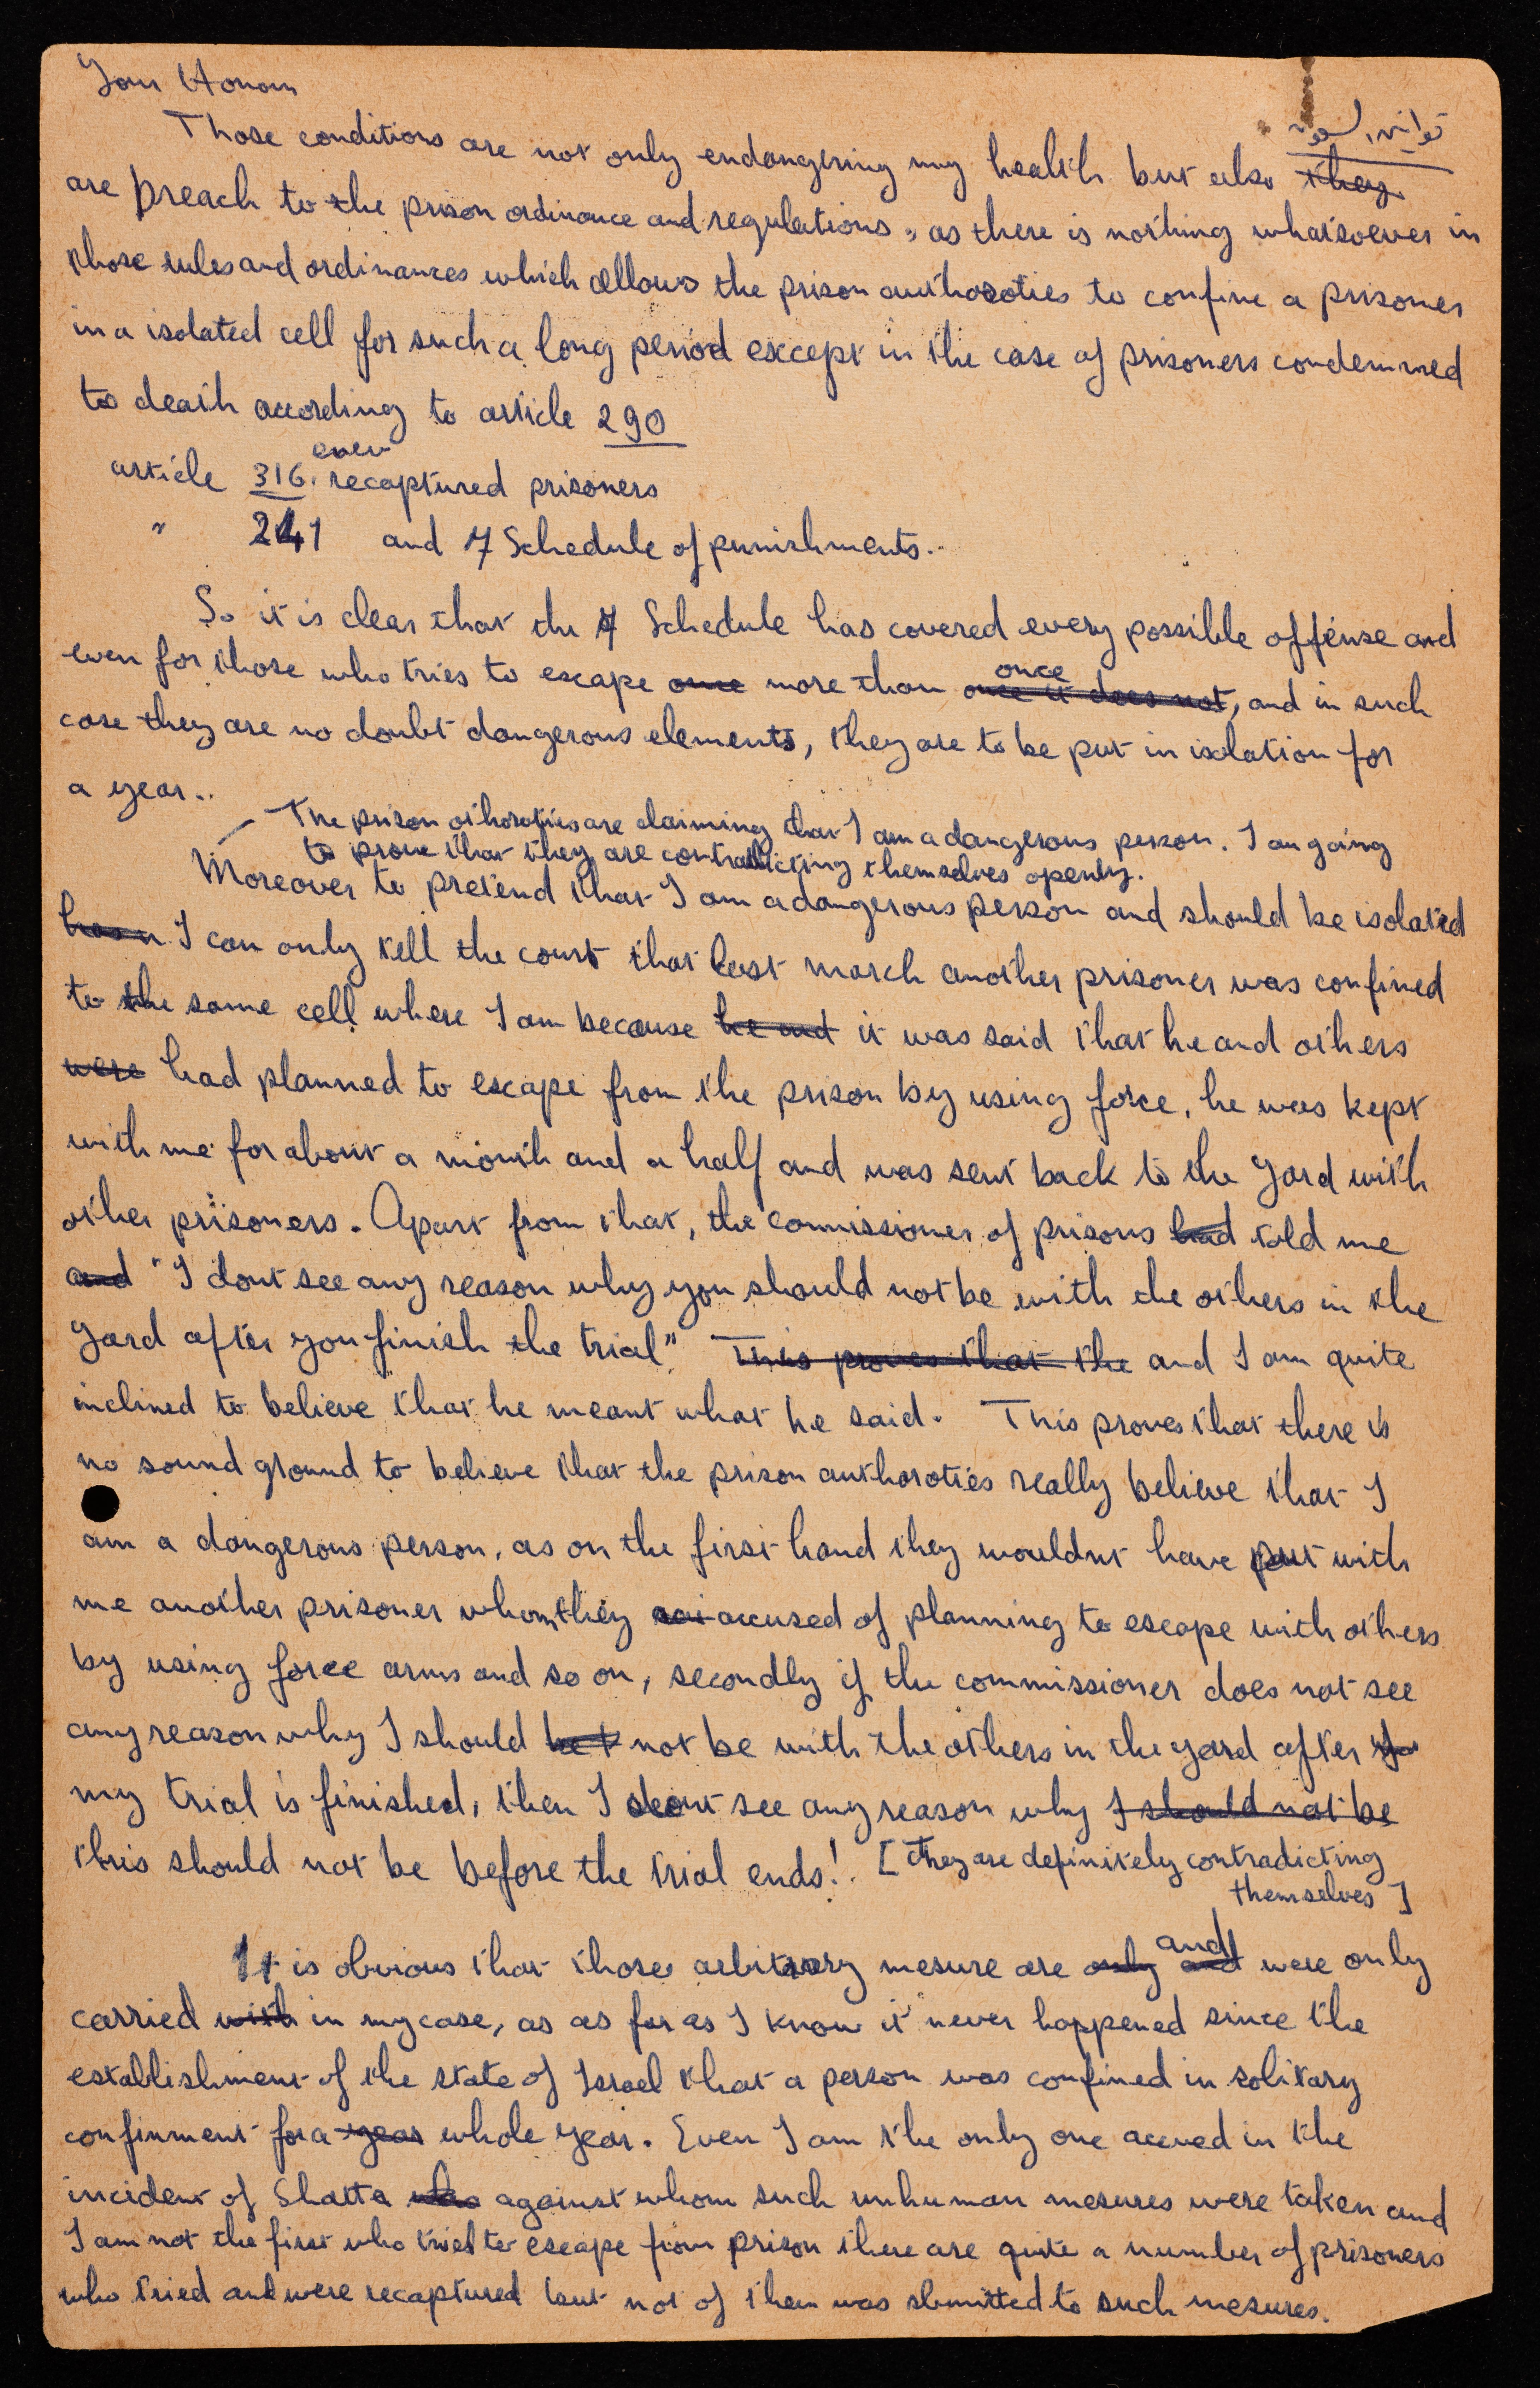 Your Honour
Those conditions are not only endangering my health but also they
are breach to the prison ordinance and regulations, as there is nothing whatsoever in
those rules and ordinances which allows the prison authoroties to confine a prisoner
in a isolated cell for such a long period except in the case of prisoners condemned
to death according to article 290
even
article 316. recaptured prisoners
" 241 and 7 Schedule of punishments..
So it is clear that the 7 Schedule has covered every possible offense and
once
even for those who tries to escape once more than once it does not, and in such
case they are no doubt dangerous elements, they are to be put in isolation for
a year..
— The prison othoroties are claiming that I am a dangerous person. I am going
to prove that they are contradicting themselves openly.
Moreover to pretend that I am a dangerous person and should be isolated
I can only tell the court that last march another prisoner was confined
to the same cell where I am because he and it was said that he and others
were had planned to escape from the prison by using force, he was kept
with me for about a month and a half and was sent back to the yard with
other prisoners. Apart from that, the commissioner of prisons had told me
and "I dont see any reason why you should not be with the others in the
yard after you finish the trial" This proves that the and I am quite
inclined to believe that he meant what he said. This proves that there is
no sound ground to believe that the prison authoroties really believe that I
am a dangerous person, as on the first hand they wouldnt have put with
me another prisoner whom they accused of planning to escape with others
by using force arms and so on, secondly if the commissioner does not see
any reason why I should not be with the others in the yard after
my trial is finished, then I dont see any reason why I should not be
this should not be before the trial ends!. [They are definitely contradicting
themselves]
and
It is obvious that those arbitrary mesure are only and were only
carried with in my case, as as far as I know it never happened since the
establishment of the state of Israel that a person was confined in solitary
confinment for a year whole year. Even I am the only one accused in the
incident of Shatta who against whom such unhuman mesures were taken and
I am not the first who tried to escape from prison there are quite a number of prisoners
who tried and were recaptured but not of them was sbmitted to such mesures.